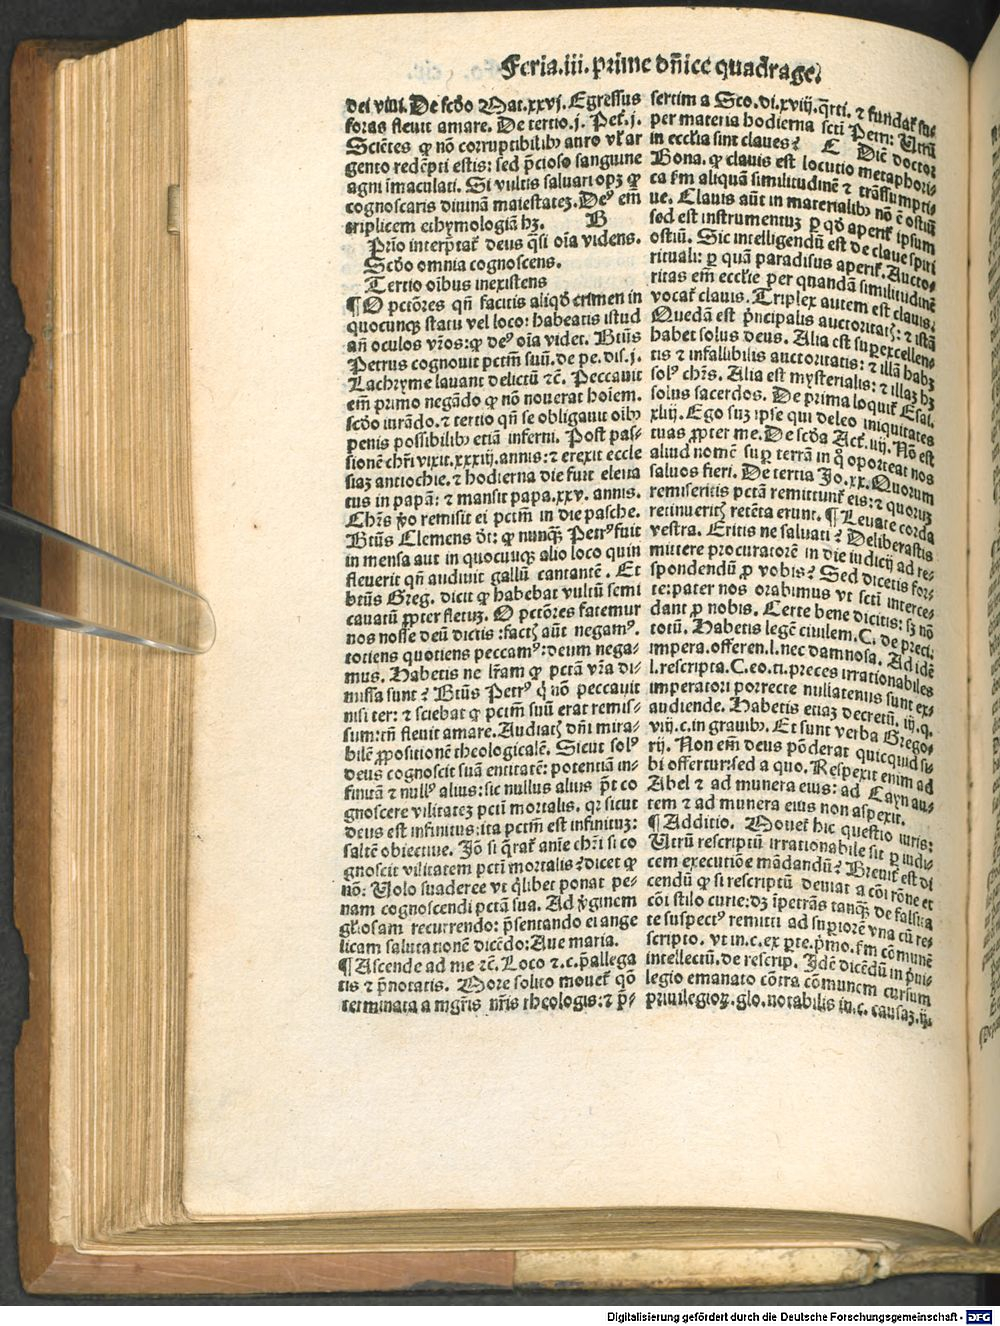 Feria.iii. prime dñice quadrage.
dei viui. De scďo Mat.xxvj. Egressus
foras fleuit amare. De tertio.j. Pet̃.j.
Sciẽtes ꝙ nõ corruptibilibꝰ auro vl̃ ar
gento redẽpti estis: sed p̃cioso sanguine
agni ĩmaculati. Si vultis saluari opꝫ ꝙ
cognoscatis diuinã maiestateꝫ. Deꝰ em̃
triplicem ethymologiã hꝫ. B
Prĩo interp̃tat̃ deus q̃si oĩa videns.
Scďo omnia cognoscens.
Tertio oĩbus inexistens
¶ O pctõres qñ facitis aliqď crimen in
quocunqꝫ statu vel loco: habeatis istud
añ oculos vr̃os: ꝙ deꝰ oĩa videt. Btũs
Petrus cognouit pctm̃ suũ. de pe. dis.j.
Lachryme lauant delictũ ⁊c̃. Peccauit
em̃ primo negãdo ꝙ nõ nouerat hoĩem.
scďo iurãdo. ⁊ tertio qñ se obligauit oĩbꝰ
penis possibilibꝰ etiã inferni. Post pas-
sionẽ chr̃i vixit.xxxiij. annis: ⁊ erexit eccle
siaꝫ antiochie. ⁊ hodierna die fuit eleua
tus in papã: ⁊ mansit papa.xxv. annis.
Chr̃s ꝟo remisit ei pctm̃ in die pasche.
Btũs Clemens ďt: ꝙ nunqꝫ Petrꝰ fuit
in mensa aut in quocunqꝫ alio loco quin
fleuerit qñ audiuit gallũ cantantẽ. Et
btũs Greg. dicit ꝙ habebat vultũ semi
cauatũ ꝓpter fletuꝫ. O pctõres fatemur
nos nosse deũ dictis: fact̃ aũt negamꝰ.
totiens quotiens peccamꝰ: deum nega-
mus. Habetis ne lr̃am ꝙ pctã vr̃a di-
missa sunt? Btũs Petrꝰ q̃ nõ peccauit
nisi ter: ⁊ sciebat ꝙ pctm̃ suũ erat remis-
sum: tñ fleuit amare. Audiatꝭ dñi mira-
bilẽ ꝓpositionẽ theologicalẽ. Sicut solꝰ
deus cognoscit suã entitatẽ: potentiã in-
finitã ⁊ nullꝰ alius: sic nullus alius p̃t co
gnoscere vilitateꝫ pcti mortalis. qr̃ sicut
deus est infinitus: ita pctm̃ est infinituꝫ:
saltẽ obiectiue. Jõ si q̃rat̃ anĩe chr̃i si co
gnoscit vilitatem pcti mortalis? dicet ꝙ
nõ: Uolo suadere vt q̃libet ponat pe-
nam cognoscendi pctã sua. Ad ꝟginem
gl̃iosam recurrendo: p̃sentando ei ange
licam salutationẽ dicẽdo: Aue maria.
¶ Ascende ad me ⁊c̃. Loco ⁊.c. p̃allega
tis ⁊ p̃notatis. More solito mouet̃ qõ
terminata a mgr̃is nr̃is theologis: ⁊ p̃-
sertim a Sco.di.xviij. q̃rti. ⁊ fundat̃ su-
per materia hodierna scti Petri: Utrũ
in eccl̃ia sint claues? C Dic̃ doctor
Bona. ꝙ clauis est locutio metaphori-
ca fm̃ aliquã similitudinẽ ⁊ trãssumpti-
ue. Clauis aũt in materialibꝰ nõ ẽ ostiũ
sed est instrumentuꝫ ꝑ qď aperit̃ ipsum
ostiũ. Sic intelligendũ est de claue spiri
rituali: ꝑ quã paradisus aperit̃. Aucto-
ritas em̃ eccl̃ie per quandã similitudinẽ
vocat̃ clauis. Triplex autem est clauis.
Quedã est p̃ncipalis auctoritatꝭ: ⁊ istã
habet solus deus. Alia est suꝑexcellen-
tis ⁊ infallibilis auctoritatis: ⁊ illã habꝫ
solꝰ chr̃s. Alia est mysterialis: ⁊ illaꝫ hꝫ
solus sacerdos. De prima loquit̃ Esai.
xliij. Ego suꝫ ipse qui deleo iniquitates
tuas ꝓpter me. De scďa Act̃.iiij. Nõ est
aliud nomẽ suꝑ terrã in q̃ oporteat nos
saluos fieri. De tertia Jo.xx. Quorum
remiseritis pctã remittunt̃ eis: ⁊ quoruꝫ
retinueritꝭ retẽta erunt. ¶ Leuate corda
vestra. Eritis ne saluati? Deliberastis
mittere procuratorẽ in die iudicij ad re-
spondendũ ꝓ vobis? Sed dicetis for-
te: pater nos orabimus vt scti interce-
dant ꝓ nobis. Certe bene dicitis: sꝫ nõ
totũ. Habetis legẽ ciuilem. C. de preci.
impera. offeren.l. nec damnosa. Ad idẽ
l. rescripta. C. eo. ti. preces irrationabiles
imperatori porrecte nullatenus sunt ex-
audiende. Habetis etiaꝫ decretũ. iij. q.
viij.c. in grauibꝰ. Et sunt verba Grego-
rij. Non em̃ deus põderat quicquid si-
bi offertur: sed a quo. Respexit enim ad
Abel ⁊ ad munera eius: ad Cayn au-
tem ⁊ ad munera eius non aspexit.
¶ Additio. Mouet̃ hic questio iuris:
Utrũ rescriptũ irrationabile sit ꝑ iudi-
cem executiõe mãdandũ? Breuit̃ est di
cendũ ꝙ si rescriptũ deuiat a cõi rõne et
cõi stilo curie: dꝫ ĩpetrãs tanqꝫ de falsita
te suspectꝰ remitti ad suꝑiorẽ vna cũ re
scripto. vt in.c. ex ꝑte. p̃mo. fm̃ cõmunẽ
intellectũ. de rescrip. Jdẽ dicẽdũ in p̃ui-
legio emanato cõtra cõmunem cursum
priuilegioꝝ. glo. notabilis in.c. causaꝫ.ij.
Digitalisierung gefördert durch die Deutsche Forschungsgemeinschaft - DFG